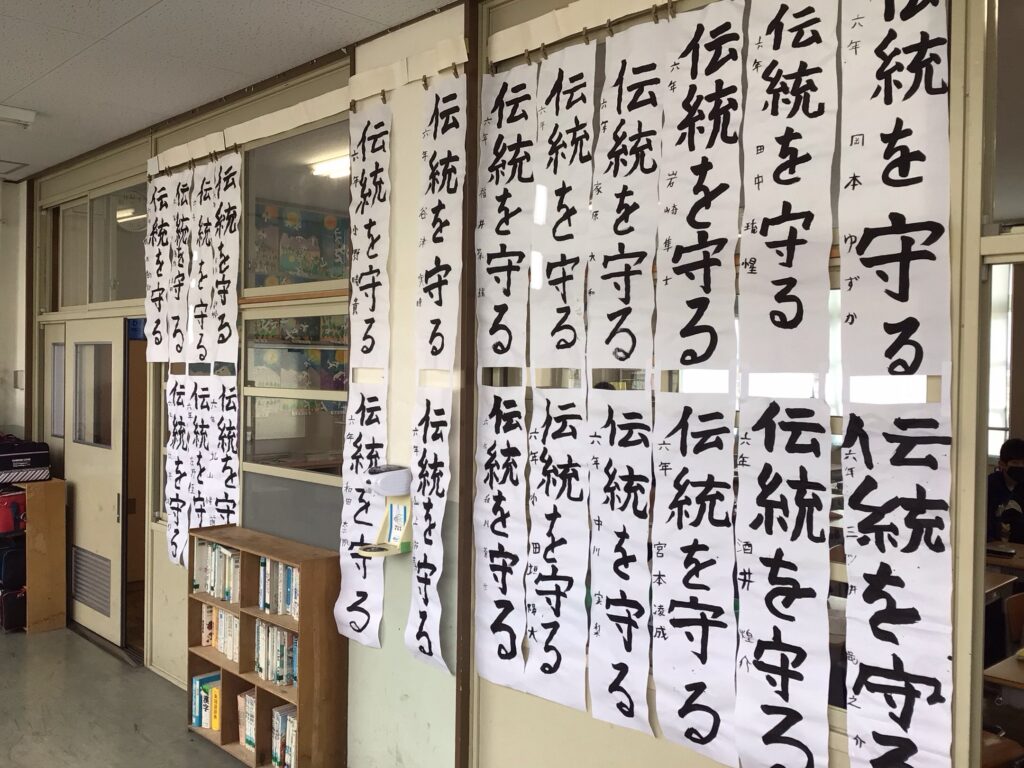 伝統を守る
六年 岡本ゆずか
伝統を守る
六年 田中
伝統を守る
六年 岩崎隼士
伝統を守る
六年 家原大和
伝統を守る
六年
伝統を守る
六年 福井
伝統を守る
六年 谷津
伝統を守る
六年
伝統を守る
伝統を守る
伝統を守る
伝統を守る
伝統を守る
六年 三ツ井 之介
伝統を守る
六年 酒井煌介
伝統を守る
六年 宮本凌成
伝統を守る
六年 中川実梨
伝統を守る
六年 陽大
伝統を守る
六年
伝統を守る
六年
伝統を守る
六年 和田
伝統を守
六年 北
伝統を守
伝統を守る